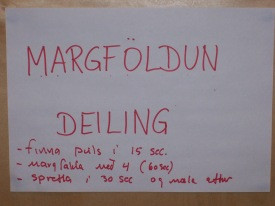 MARGFÖLDUN
DEILING
- finna puls í 15 sec.
- margfalda með 4 (60 sec)
- spretta í 30 sec og mæla aftur